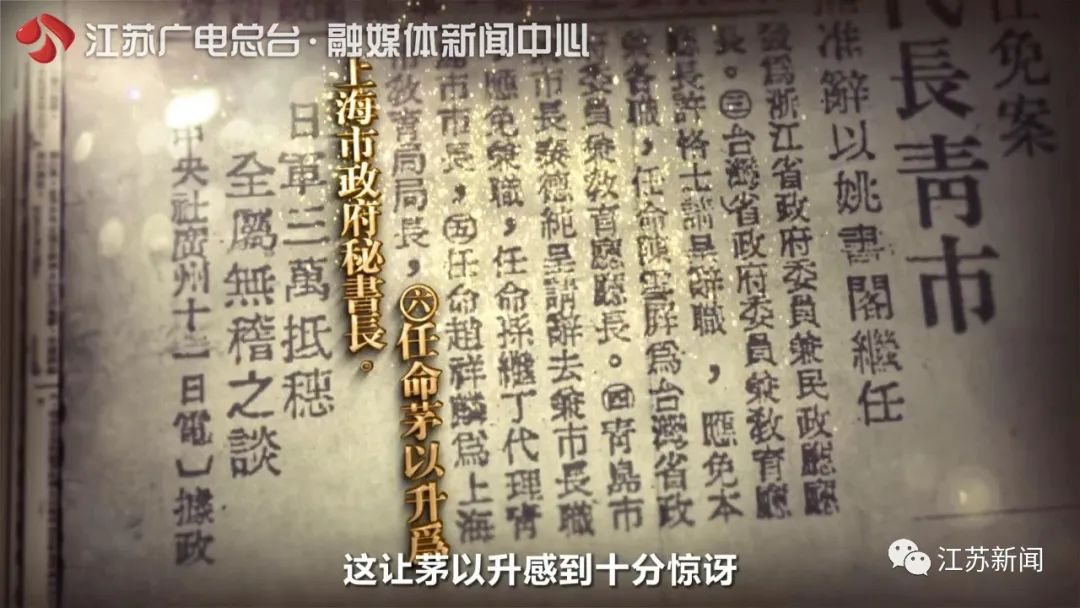 江苏广电总台·融媒体新闻中心
任免案
代長青市
准辭以姚書閣繼任
發爲浙江省政府委員兼民政廳廳
長。㊂台灣省政府委員兼教育廳
廳長許恪士請呈辭職，應免本
兼各職，任命陳雪屛爲台灣省政
府委員兼教育廳廳長。㊃靑島市
市長秦德純呈請辭去兼市長職
應免兼職，任命孫繼丁代理靑
島市市長，㊄任命趙祥麟爲上海
市教育局局長，㊅任命茅以升爲
上海市政府秘書長。
日軍三萬抵穗
全屬無稽之談
中央社廣州十一日電】據政
这让茅以升感到十分惊讶
江苏新闻